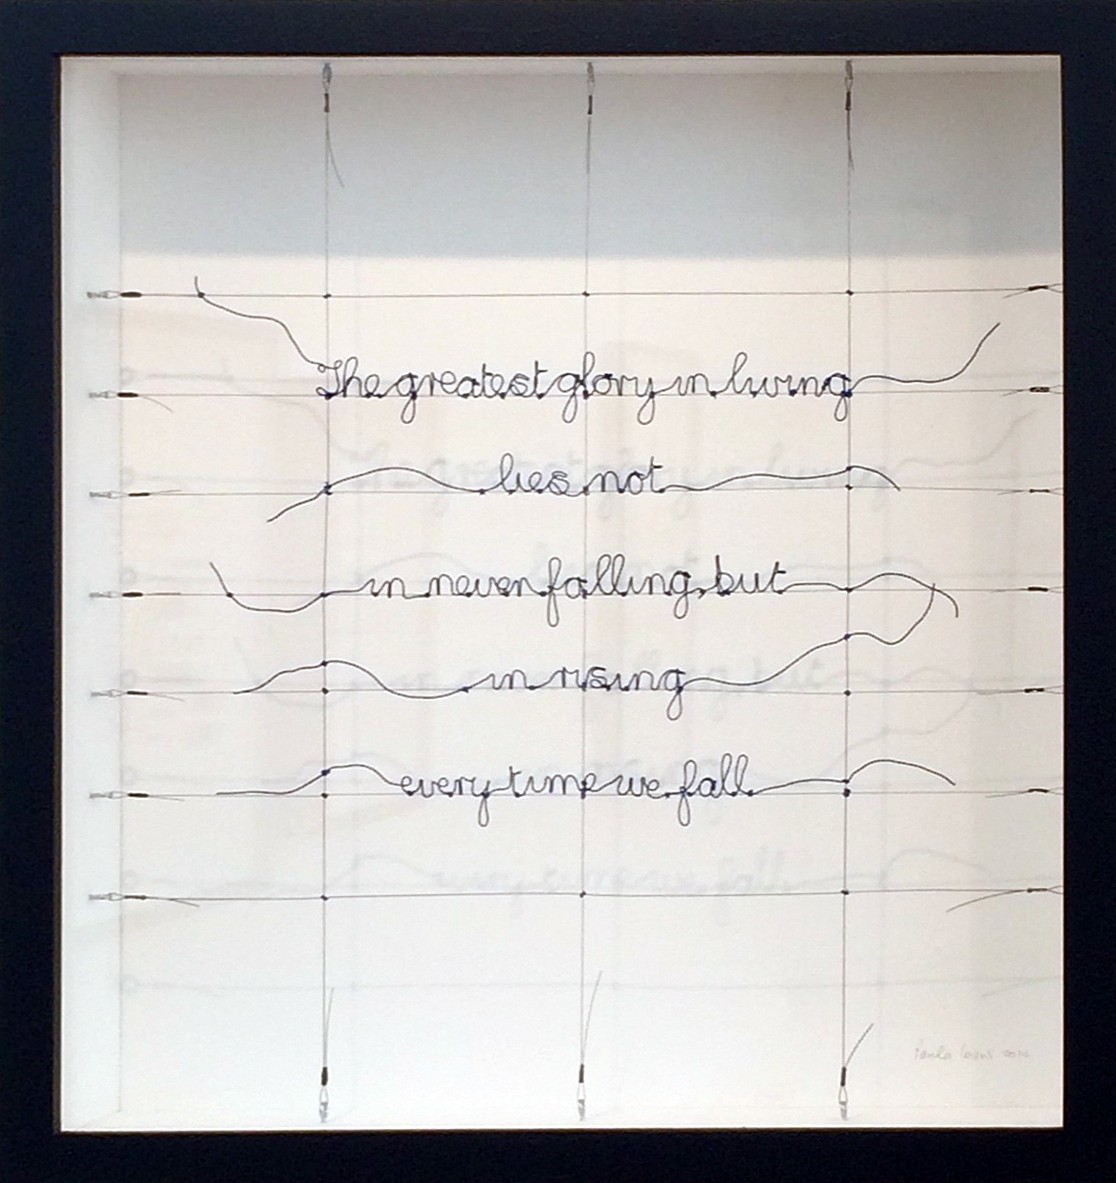 The greatest glory in living
lies not
in never falling, but
in rising
every time we fall.